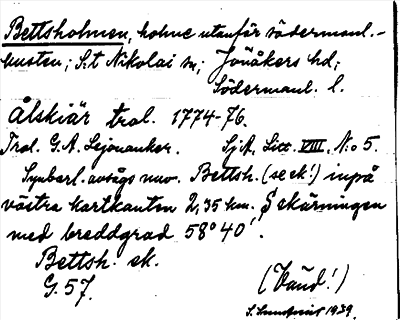 Bettsholmen, holme utanför södermanl.-
kusten; S:t Nikolai sn; Jönåkers hd;
Södermanl. l.
Ålskiär trol. 1774-76.
Trol. G.A. Lejonanker. Sj.A. Litt. VIII. No 5.
Synbarl. avsågs nuv. Bettsh. (se ek!) inpå
västra kartkanten 2,35 km. S skärningen
med breddgrad 58°40'.
Bettsh. ek.
G. 57. (Vänd!)
1939.